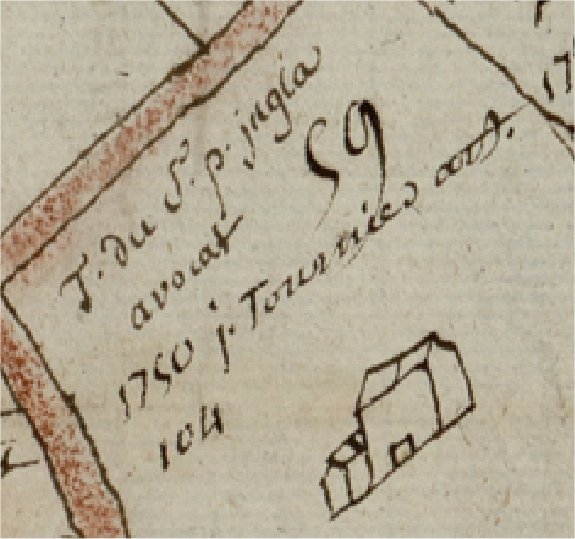 T. du S. p. jngla
avocat
59
1750 j. Tournier
104
17